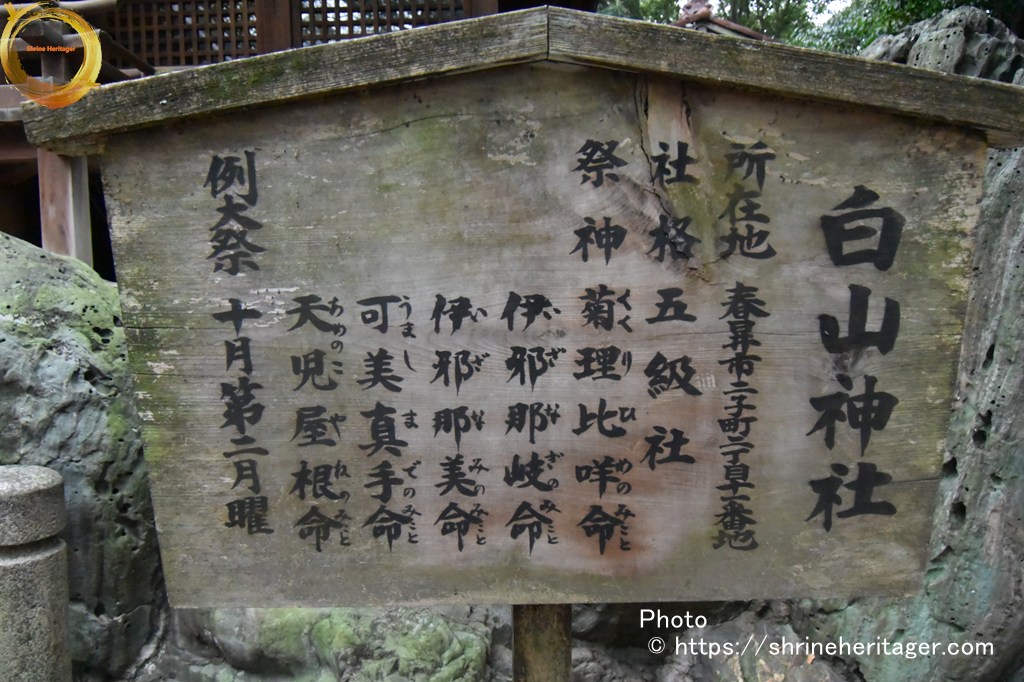 白山神社
所在地 春日井市二子町二丁目十一番地
社格 五級社
祭神 菊理比咩命
くくりひめのみこと
伊邪那岐命
いざなぎのみこと
伊邪那美命
いざなみのみこと
可美真手命
うましまでのみこと
天児屋根命
あめのこやねのみこと
例大祭 十月第二月曜
Shrine Heritager
Photo
© https://shrineheritager.com